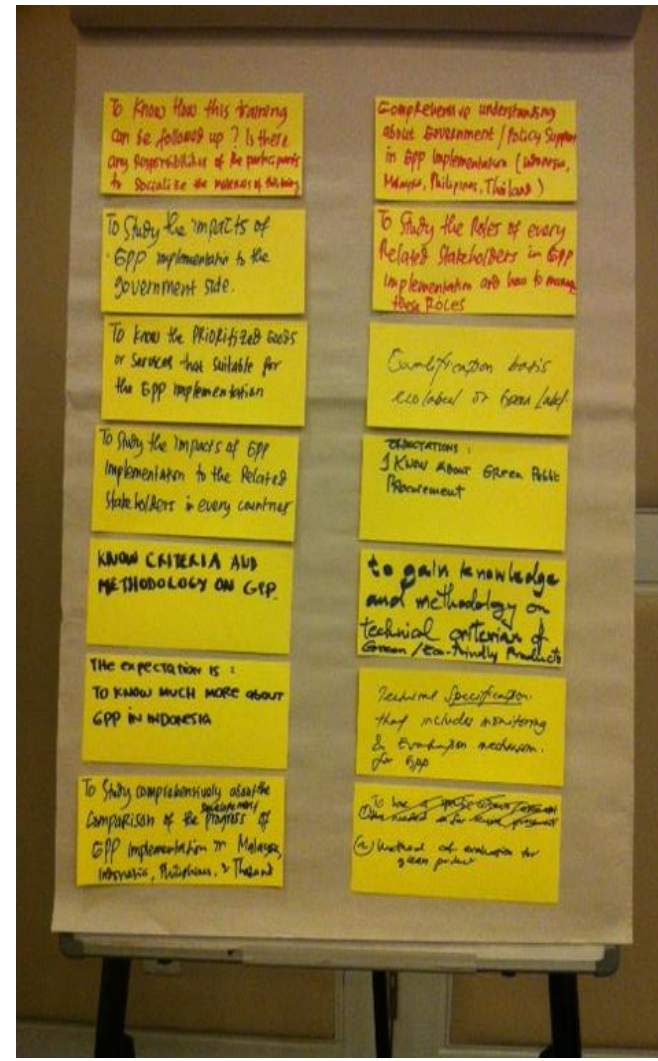 To Know How this training
can be followed up? Is there
any Responsibilities of the participants
to Socialize the materials of this
To Study the impacts of
GPP implementation to the
government side.
To know the PRIORITIZED GOODS
or Services that suitable for
the GPP implementation
To Study the impacts of GPP
Implementation to the Related
Stakeholders in every countries
KNOW CRITERIA AND
METHODOLOGY ON GPP.
THE EXPECTATION IS :
TO KNOW MUCH MORE ABOUT
GPP IN INDONESIA
To Study comprehensively about the
Comparison of the Progress of
GPP implementation in Malaysia,
Indonesia, Philiphines, & Thailand
Comprehensive understanding
about Government / Policy Support
in GPP Implementation (Indonesia,
Malaysia, Philipines, Thailand)
To Study the Roles of every
Related Stakeholders in GPP
Implementation and how to manage
these Roles
Qualification basis
ecolabel or Green Label.
EXPECTATIONS :
I KNOW ABOUT GREEN PUBLIC
PROCUREMENT
to gain knowledge
and methodology on
technical criterian of
Green / Eco-Friendly Products
Technical Specification
that includes monitoring
& Evaluation mechanism.
for GPP
(2) Method of evaluation for
green product